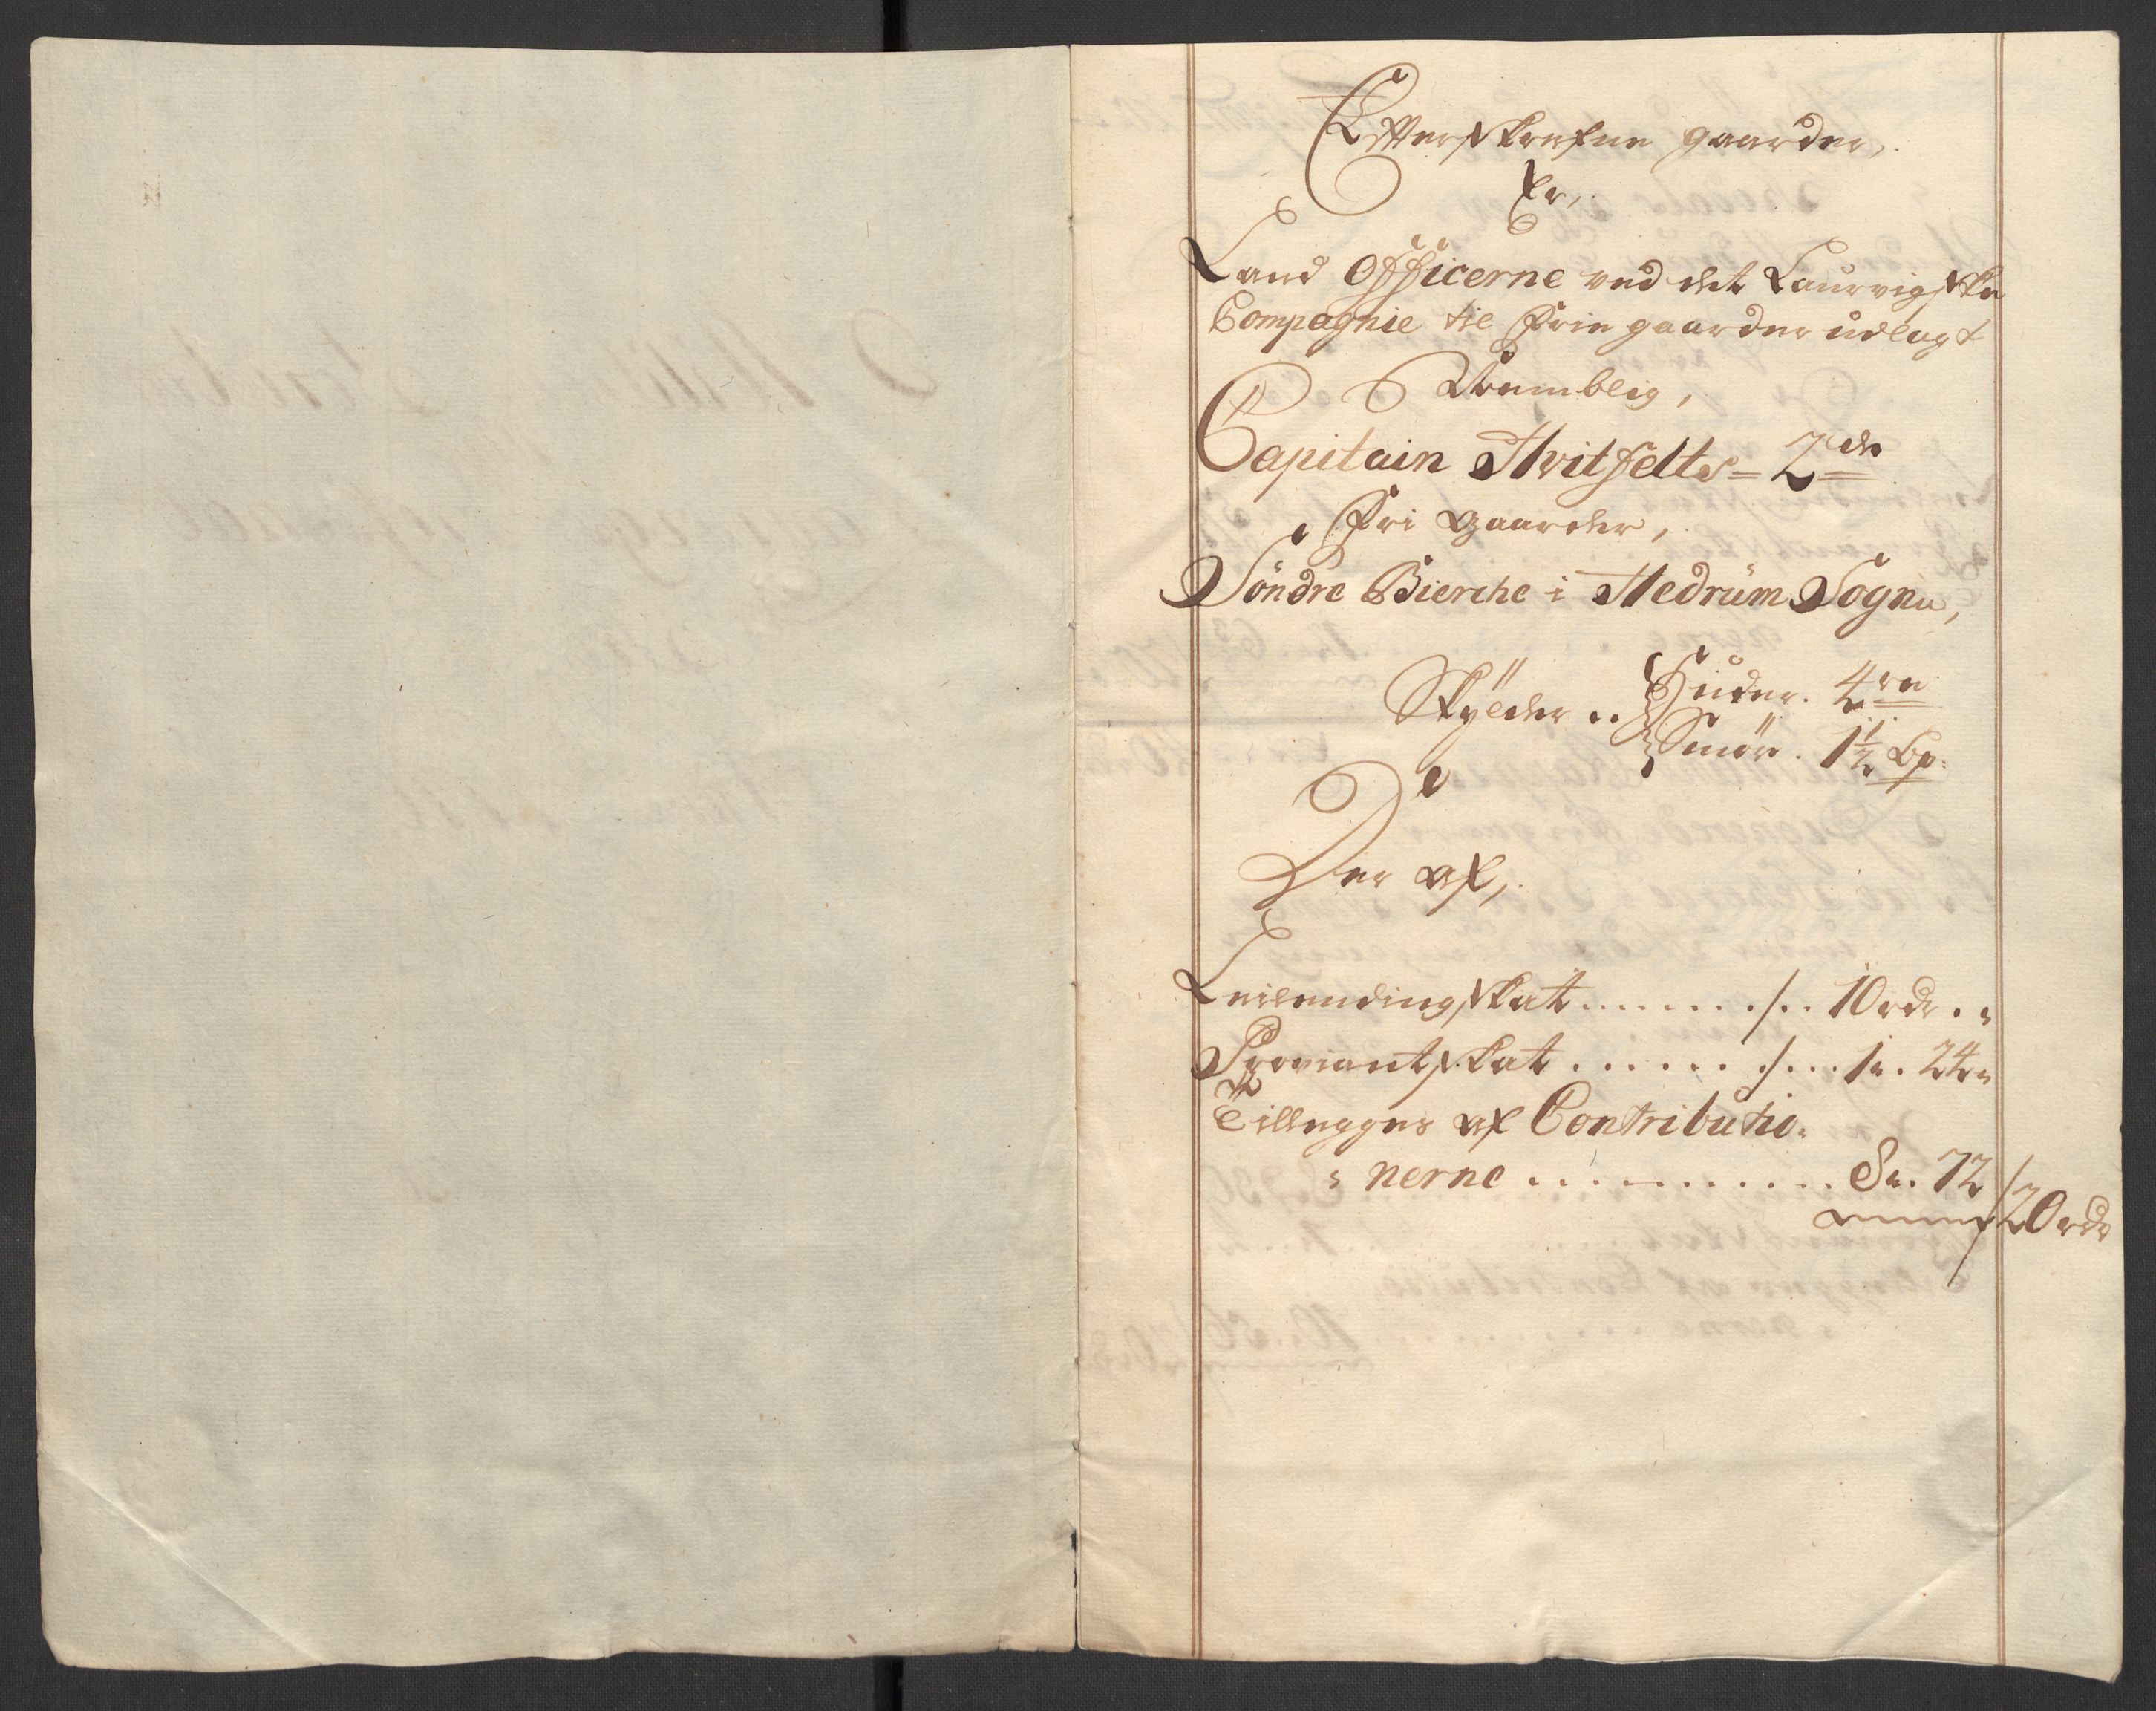 Effterskrefne gaarder,
Er,
Land Officerne ved det Laurvigske
Compagnie til frie gaarder udlagt
Nemblig,
Capitain Hvitfelts = 2de
Fri Gaarder,
Söndre Bierche i Hedrüm Sogn,
Skylder .. Huder. 4re
Smör. 1½ Bp.
Der af,
Leilendingskat ........ /.. 10rdr..
Proviantskat ....... /... 1„. 24„
Tillegges af Contributio=
= nerne ............ 8„. 72
20rdr